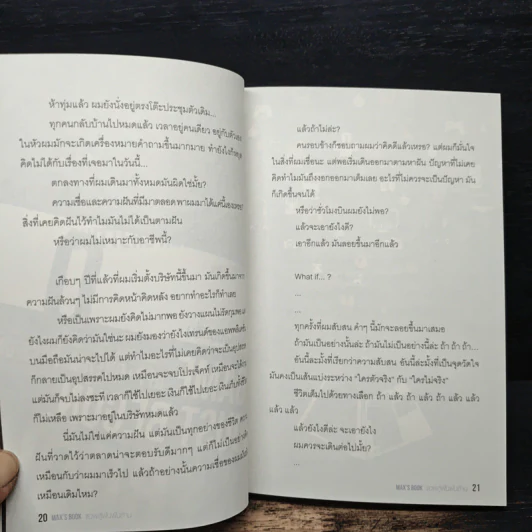 ห้าทุ่มแล้ว ผมยังนั่งอยู่ตรงโต๊ะประชุมตัวเดิม...
ทุกคนกลับบ้านไปหมดแล้ว เวลาอยู่คนเดียว อยู่กับตัวเอง
ในหัวผมมักจะเกิดเครื่องหมายคำถามขึ้นมากมาย ทำยังไงก็
คิดไม่ได้กับเรื่องที่เจอมาในวันนี้...
ตกลงทางที่ผมเดินมาทั้งหมดมันผิดใช่มั้ย?
ความเชื่อและความฝันที่มีมาตลอด พาผมมาได้แค่นี้เองเหรอ
สิ่งที่เคยคิดฝันไว้ทำไมมันไม่ได้เป็นตามฝัน
หรือว่าผมไม่เหมาะกับอาชีพนี้?
เกือบๆ ปีที่แล้วที่ผมเริ่มตั้งบริษัทนี้ขึ้นมา มันเกิดขึ้นมาจาก
ความฝันล้วนๆ ไม่มีการคิดหน้าคิดหลัง อยากทำอะไรก็ทำเลย
หรือเป็นเพราะผมยังคิดไม่มากพอ ยังวางแผนไม่รัดกุมพอ
ยังไงผมก็ยังคิดว่ามันใช่นะ ผมยังมองว่ายังไงเทรนด์ของแอพพลิเคชั่น
บนมือถือมันน่าจะไปได้ แต่ทำไมอะไรที่ไม่เคยคิดว่าจะเป็นอุปสรรค
ก็กลายเป็นอุปสรรคไปหมด เหมือนจะจบโปรเจ็คท์ เหมือนจะได้
แต่มันก็จบไม่ลงซะที เวลาก็ใช้ไปเยอะ เงินก็ใช้ไปเยอะ เงินเก็บทั้งชีวิต
ก็ไม่เหลือ เพราะมาอยู่ในบริษัทหมดแล้ว
นี่มันไม่ใช่แค่ความฝัน แต่มันเป็นทุกอย่างของชีวิต
ฝันที่วาดไว้ว่าตลาดน่าจะตอบรับดีมากๆ แต่ก็ไม่เป็นอย่าง
เหมือนกับว่าผมมาเร็วไป แล้วถ้าอย่างนั้นความเชื่อของผม
เหมือนเดิมไหม?
20 MAX'S BOOK
แล้วถ้าไม่ล่ะ?
คนรอบข้างก็ชอบถามผมว่าคิดดีแล้วเหรอ? แต่ผมก็มั่นใจ
ในสิ่งที่ผมเชื่อนะ แต่พอเริ่มเดินออกมาตามหาฝัน ปัญหาที่ไม่เคย
คิดทำไมมันถึงงอกออกมาเต็มเลย อะไรที่ไม่ควรจะเป็นปัญหา มัน
ก็เกิดขึ้นจนได้
หรือว่าชั่วโมงบินผมยังไม่พอ?
แล้วจะเอายังไงดี?
เอาอีกแล้ว มันลอยขึ้นมาอีกแล้ว
What if... ?
...
...
ทุกครั้งที่ผมสับสน คำๆ นี้มักจะลอยขึ้นมาเสมอ
ถ้ามันเป็นอย่างนั้นล่ะ ถ้ามันไม่เป็นอย่างนี้ล่ะ ถ้า ถ้า ถ้า...
อันนี้ละมั้งที่เรียกว่าความสับสน อันนี้ละมั้งที่เป็นจุดวัดใจ
มันคงเป็นเส้นแบ่งระหว่าง "ใครตัวจริง" กับ "ใครไม่จริง"
ชีวิตเดิมไปด้วยทางเลือก ถ้า แล้ว ถ้า แล้ว ถ้า แล้ว แล้ว
แล้ว แล้ว
แล้วยังไงดีล่ะ จะเอายังไง
ผมควรจะเดินต่อไปมั้ย?
...
MAX'S BOOK 21